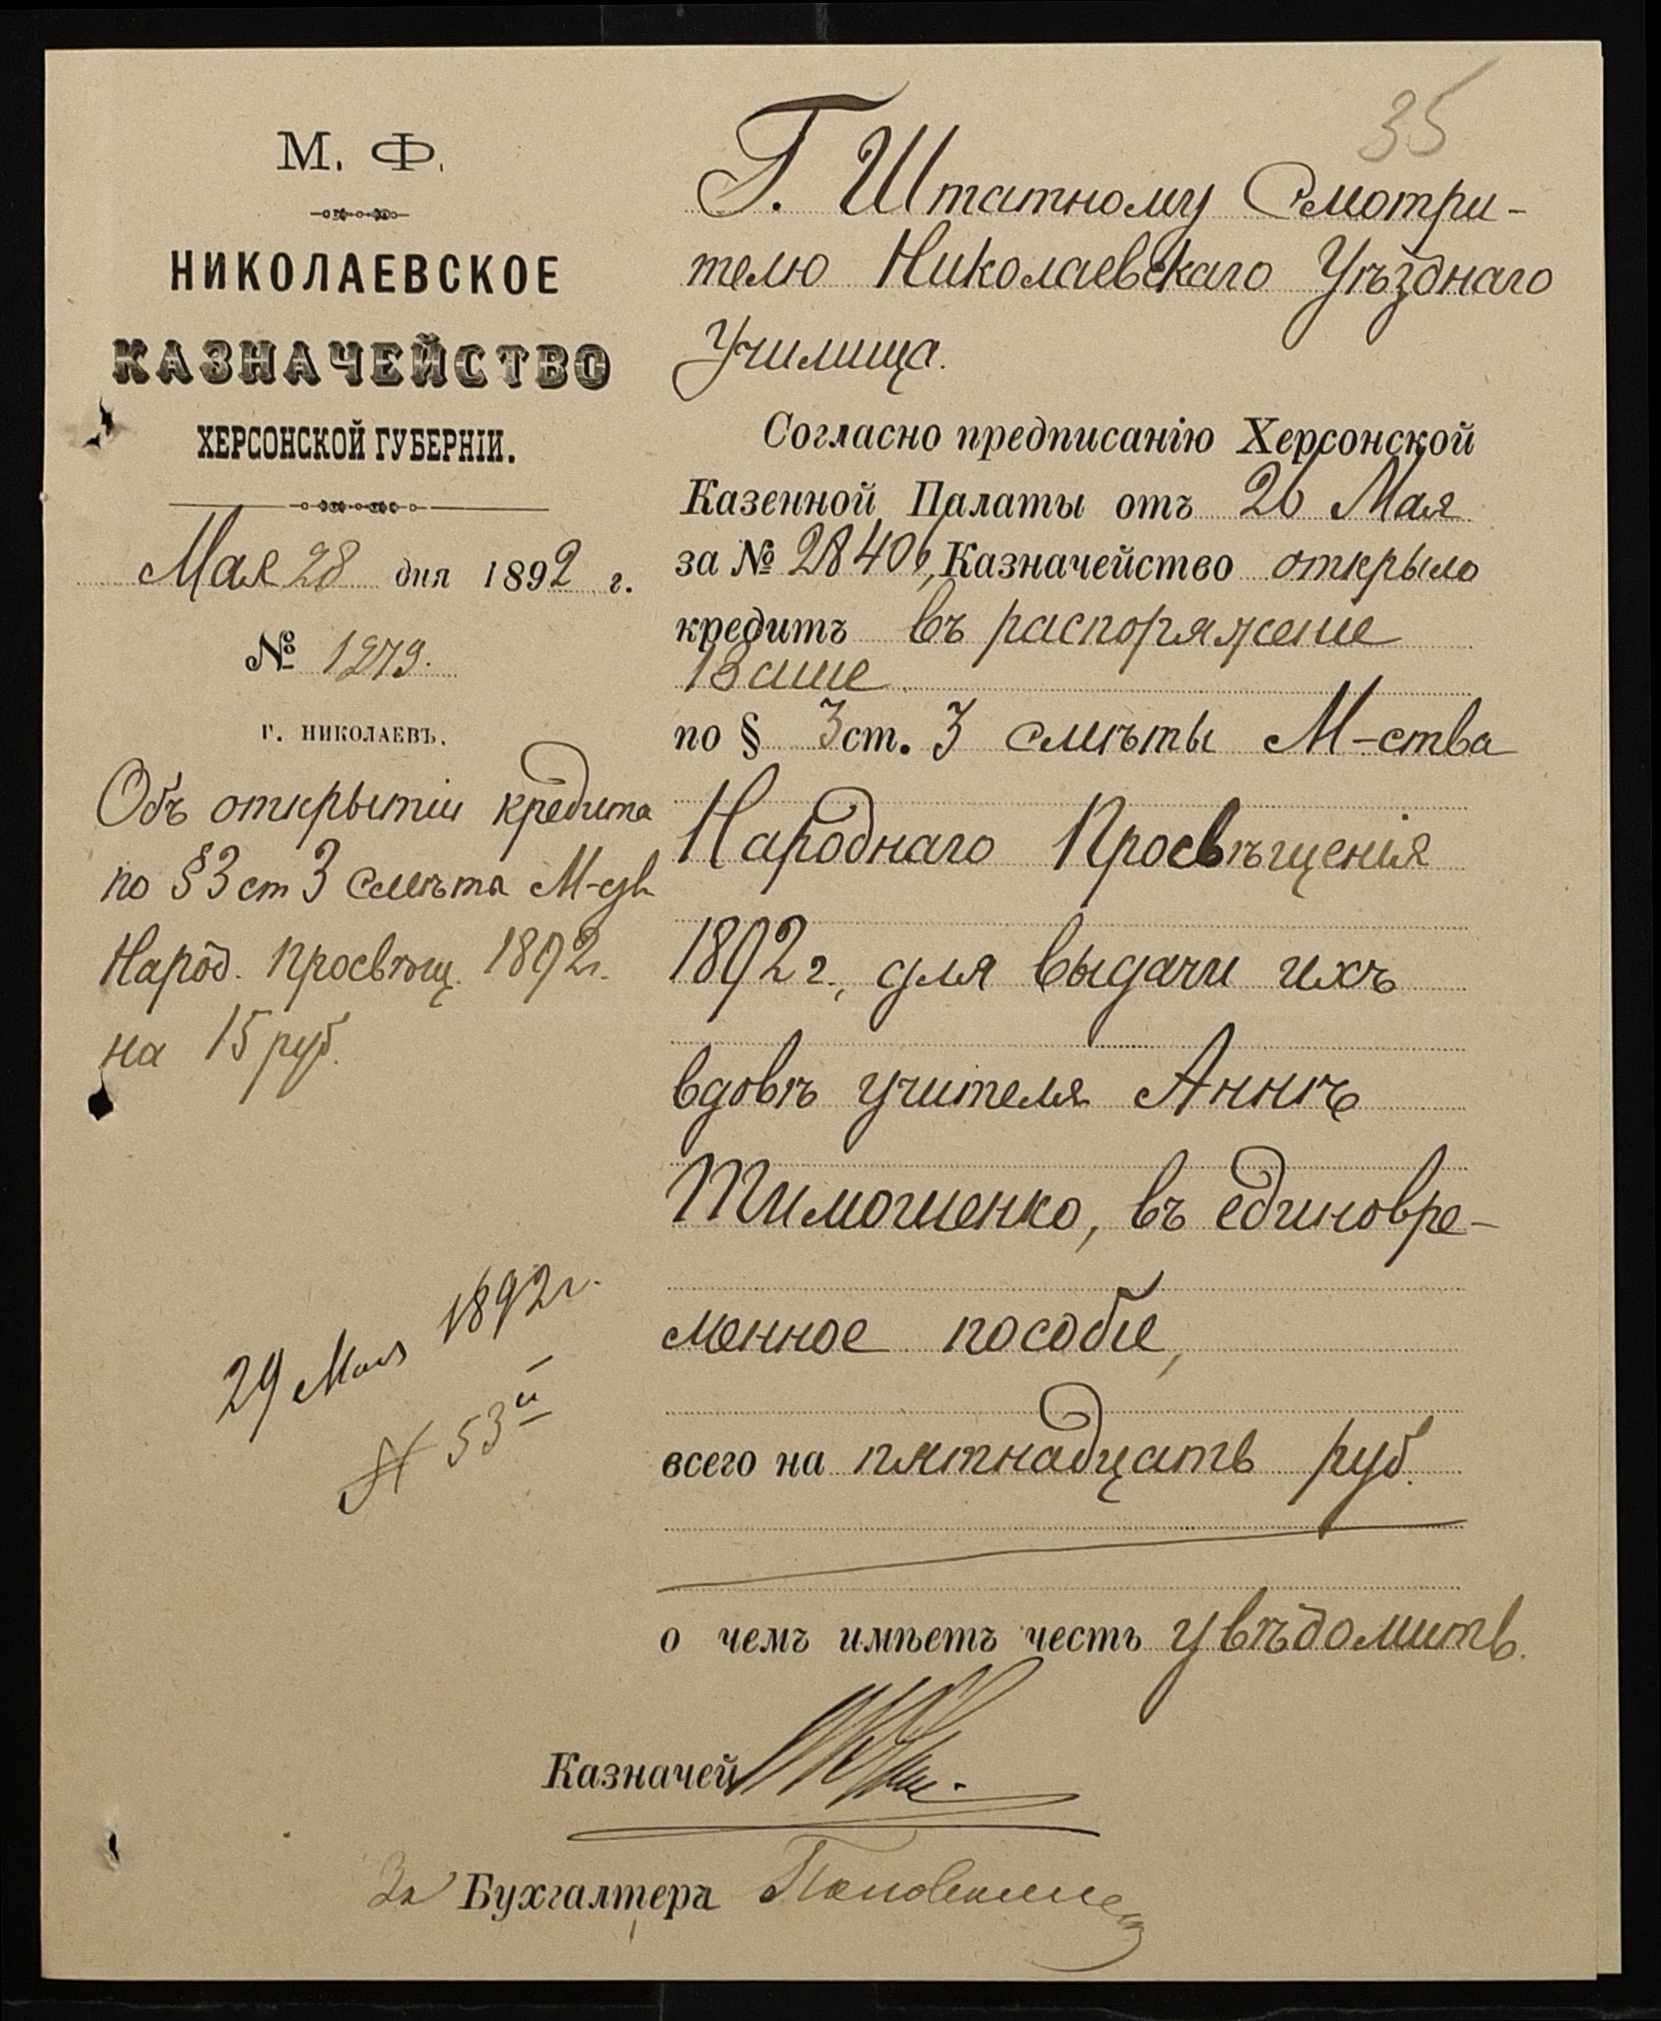 М. Ф.
НИКОЛАЕВСКОЕ
КАЗНАЧЕЙСТВО
ХЕРСОНСКОЙ ГУБЕРНІИ.
Мая 28 дня 1892 г.
№ 1279.
г. НИКОЛАЕВЪ.
Объ открытіи кредита
по § 3 ст 3 смѣты М-ва
Народ. Просвѣщ. 1892 г.
на 15 руб.
29 Мая 1892 г.
№ 53й
35
Г. Штатному Смотри-
телю Николаевскаго Уѣзднаго
Училища.
Согласно предписанію Херсонской
Казенной Палаты отъ 26 Мая
за № 28406, Казначейство открыло
кредитъ въ распоряженіе
Ваше
по § 3 ст. 3 смѣты М-ства
Народнаго Просвѣщенія
1892 г., для выдачи ихъ
вдовѣ учителя Аннѣ
Тимошенко, въ единовре-
менное пособіе,
всего на пятнадцать руб.
о чемъ имѣетъ честь увѣдомить.
Казначей
За Бухгалтера